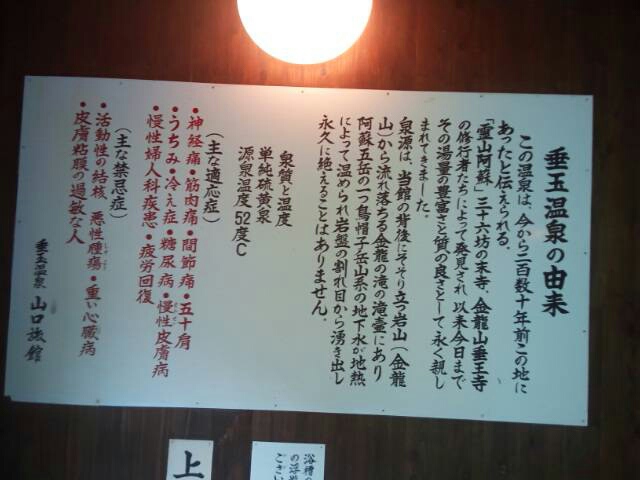 垂玉温泉の由来
この温泉は、今から二百数十年前この地に
あったと伝えられる。
「霊山阿蘇」三十六坊の末寺、金龍山垂玉寺
の修行者たちによって発見され、以来今日まで
その湯量の豊富さと質の良さとして永く親し
まれてきました。
泉源は、当館の背後にそそり立つ岩山(金龍
山)から流れ落ちる金龍の滝の滝壷にあり
阿蘇五岳の一つ烏帽子岳山系の地下水が地熱
によって温められ岩盤の割れ目から湧き出し
永久に絶えることはありません。
泉質と温度
単純硫黄泉
源泉温度52度C
(主な適応症)
・神経痛・筋肉痛・関節痛・五十肩
・うちみ・冷え症・糖尿病・慢性皮膚病
・慢性婦人科疾患・疲労回復
(主な禁忌症)
・活動性の結核・悪性腫瘍・重い心臓病
・皮膚粘膜の過敏な人
垂玉温泉 山口旅館
上
浴槽の
の浮遊
ござい